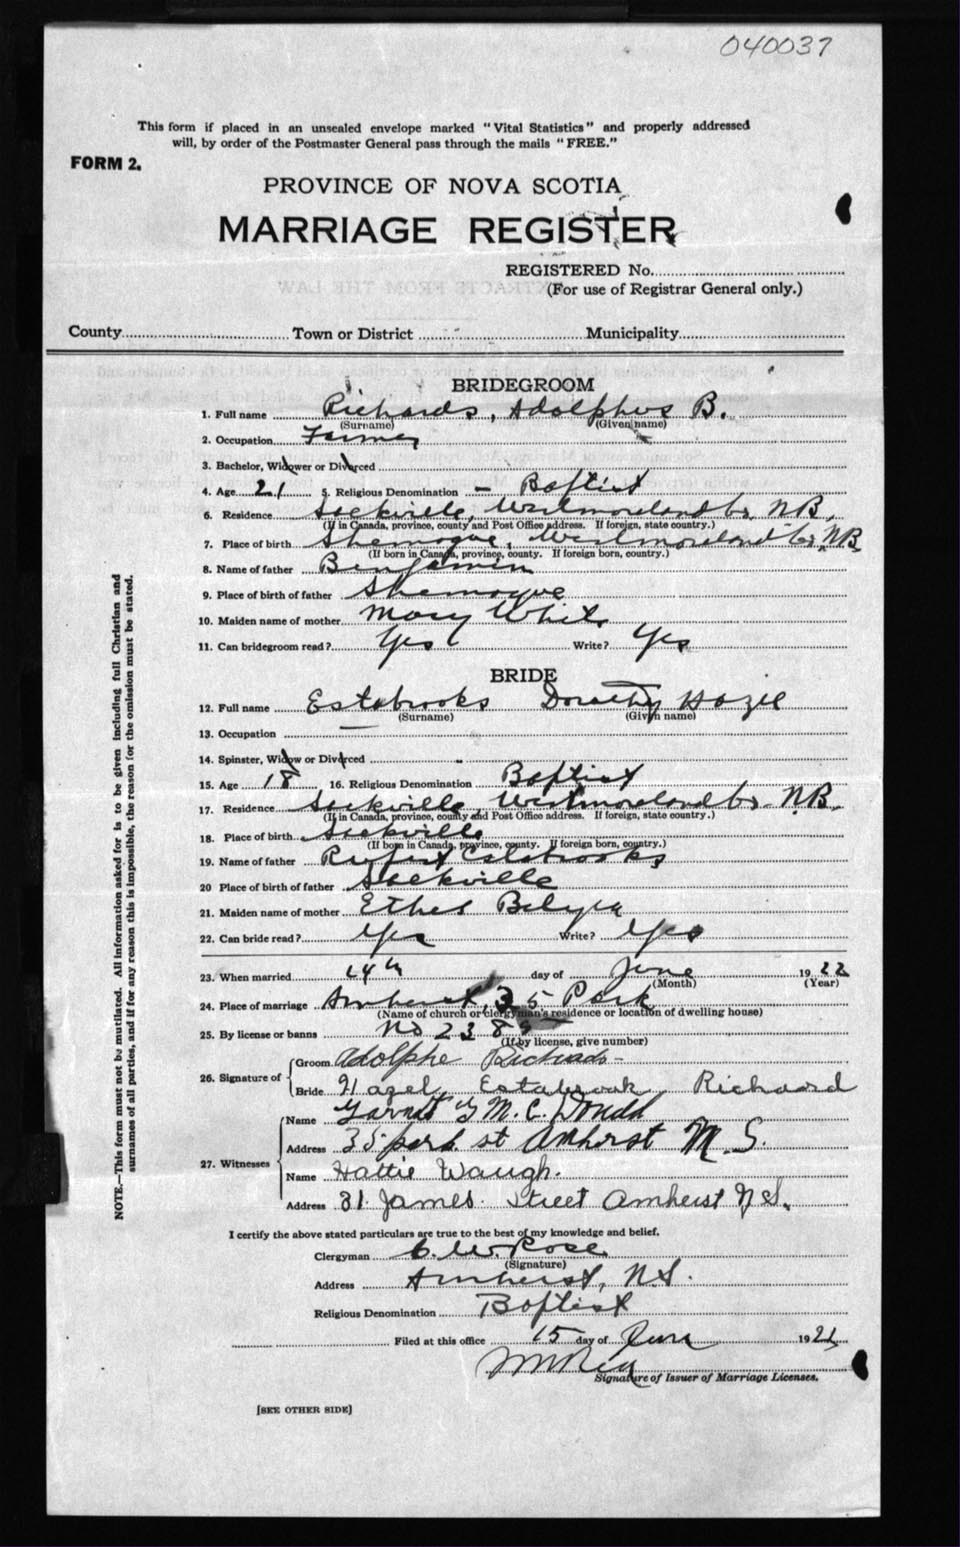 040037
This form if placed in an unsealed envelope marked "Vital Statistics" and properly addressed
will, by order of the Postmaster General pass through the mails "FREE."
FORM 2.
PROVINCE OF NOVA SCOTIA
MARRIAGE REGISTER
REGISTERED No.
(For use of Registrar General only.)
County Town or District Municipality
BRIDEGROOM
1. Full name Richards, Adolphus B.
(Surname) (Given name)
2. Occupation Farmer
3. Bachelor, Widower or Divorced
4. Age 21 5. Religious Denomination - Baptist
6. Residence Sackville, Westmoreland Co. N.B.
(If in Canada, province, county and Post Office address. If foreign, state country.)
7. Place of birth Shemogue, Westmoreland Co. N.B.
(If born in Canada, province, county. If foreign born, country.)
8. Name of father Benjamin
9. Place of birth of father Shemogue
10. Maiden name of mother Mary White
11. Can bridegroom read? Yes Write? Yes
BRIDE
12. Full name Estabrooks Dorothy Hazel
(Surname) (Given name)
13. Occupation —
14. Spinster, Widow or Divorced
15. Age 18 16. Religious Denomination Baptist
17. Residence Sackville, Westmoreland Co. N.B.
(If in Canada, province, county and Post Office address. If foreign, state country.)
18. Place of birth Sackville
(If born in Canada, province, county. If foreign born, country.)
19. Name of father Estabrooks
20 Place of birth of father Sackville
21. Maiden name of mother Ethel Belyea
22. Can bride read? Yes Write? Yes
23. When married 14th day of June 1922
(Month) (Year)
24. Place of marriage Amherst, 35 Park
(Name of church or clergyman's residence or location of dwelling house)
25. By license or banns No 2389
(If by license, give number)
26. Signature of
Groom Adolphe Richards -
Bride Hazel Estabrook Richard
27. Witnesses
Name
Address 35 park st Amherst N. S.
Name Hattie Waugh.
Address 31. James. Street Amherst N.S.
I certify the above stated particulars are true to the best of my knowledge and belief.
Clergyman C. W. Rose
(Signature)
Address Amherst, N.S.
Religious Denomination Baptist
Filed at this office 15 day of June 192
Signature of Issuer of Marriage Licenses.
[SEE OTHER SIDE]
NOTE.—This form must not be mutilated. All information asked for is to be given including full Christian and
surnames of all parties, and if for any reason this is impossible, the reason for the omission must be stated.